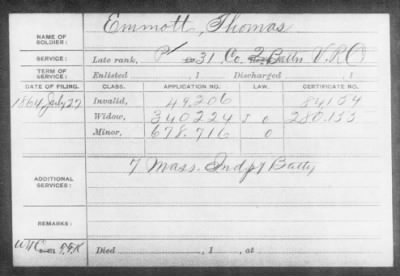 NAME OF SOLDIER: Emmott, Thomas
SERVICE: Late rank, Pv 31 Co. 2 Battn V.R.C.
TERM OF SERVICE: Enlisted , 1 Discharged , 1
DATE OF FILING. CLASS. APPLICATION NO. LAW. CERTIFICATE NO.
1864 July 27 Invalid, 49,206 84,154
Widow, 340224 J 0 280.133
Minor, 678,716 0
ADDITIONAL SERVICES: 7 Mass. Indpt Batty
REMARKS:
Died , 1 , at